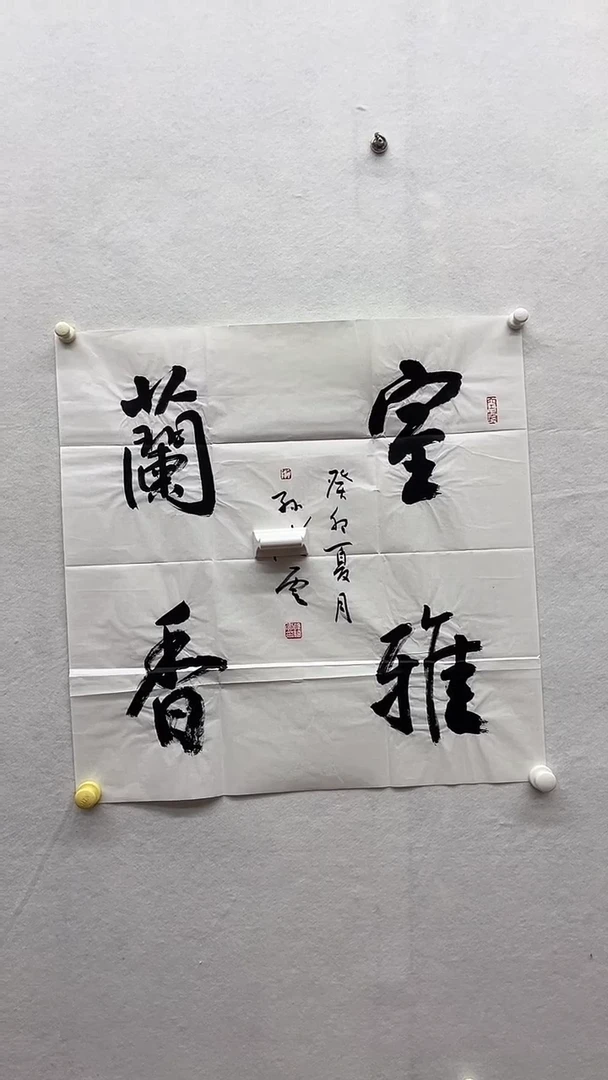 室雅
蘭香
癸卯夏月
孫 雲